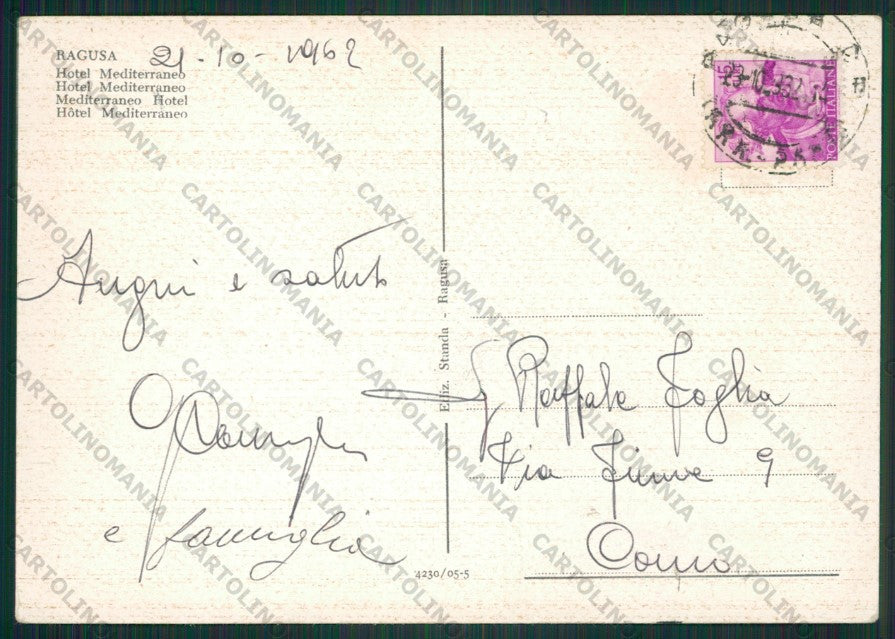 RAGUSA 21-10-1962
Hotel Mediterraneo
Hotel Mediterraneo
Mediterraneo Hotel
Hôtel Mediterraneo
POSTE ITALIANE
Auguri e saluti
e famiglia
Ediz. Standa - Ragusa
Raffaele Foglia
Via Fiume 9
Como
4230/05-5
CARTOLINOMANIA